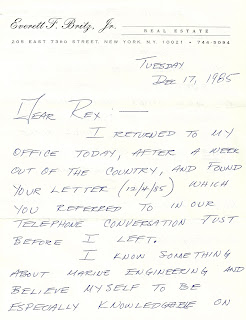 Everett F. Britz, Jr.
REAL ESTATE
205 EAST 73RD STREET, NEW YORK, N.Y. 10021 • 744-0094
TUESDAY
DEC 17, 1985
DEAR REX: —
I RETURNED TO MY
OFFICE TODAY, AFTER A WEEK
OUT OF THE COUNTRY, AND FOUND
YOUR LETTER (12/4/85) WHICH
YOU REFERRED TO IN OUR
TELEPHONE CONVERSATION JUST
BEFORE I LEFT.
I KNOW SOMETHING
ABOUT MARINE ENGINEERING AND
BELIEVE MYSELF TO BE
ESPECIALLY KNOWLEDGEABLE ON